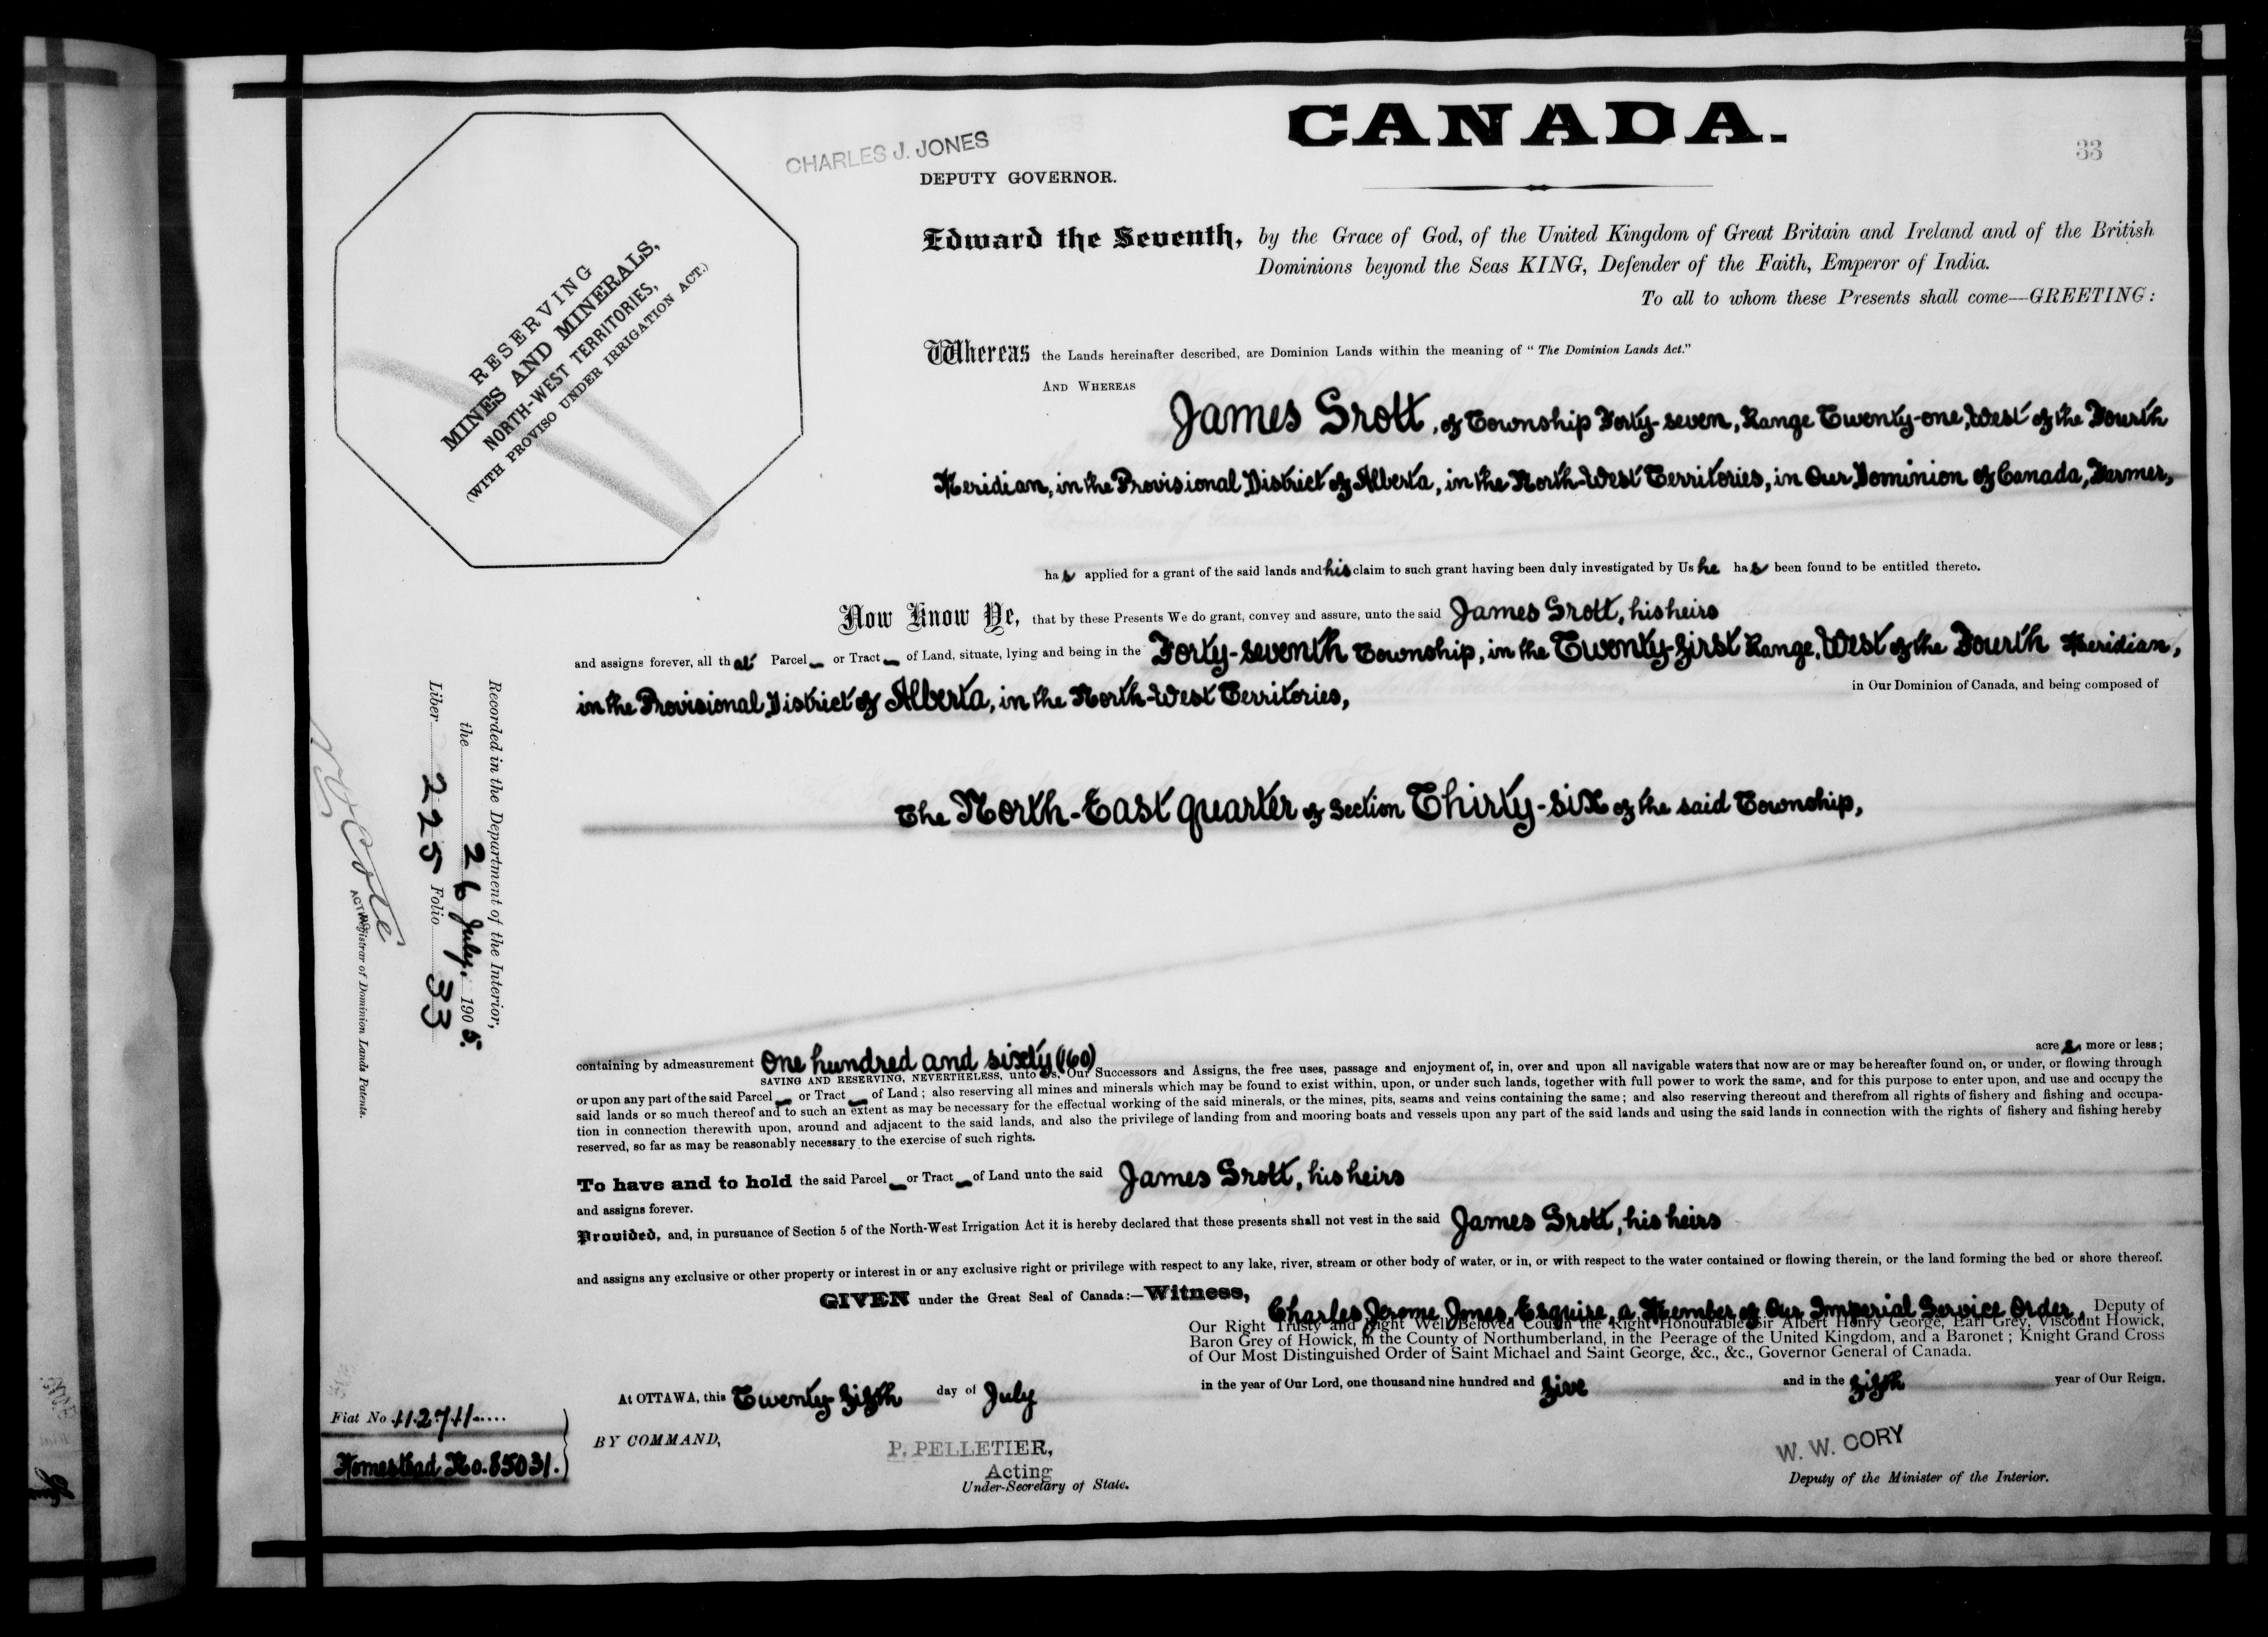 CANADA.
33
CHARLES J. JONES
DEPUTY GOVERNOR.
RESERVING
MINES AND MINERALS,
NORTH-WEST TERRITORIES,
(WITH PROVISO UNDER IRRIGATION ACT.)
Edward the Seventh, by the Grace of God, of the United Kingdom of Great Britain and Ireland and of the British
Dominions beyond the Seas KING, Defender of the Faith, Emperor of India.
To all to whom these Presents shall come—GREETING:
Whereas the Lands hereinafter described, are Dominion Lands within the meaning of "The Dominion Lands Act."
AND WHEREAS
James Srott, of Township Forty-seven, Range Twenty-one, West of the Fourth
Meridian, in the Provisional District of Alberta, in the North-West Territories, in Our Dominion of Canada, Farmer,
has applied for a grant of the said lands and his claim to such grant having been duly investigated by Us he has been found to be entitled thereto.
Now Know Ye, that by these Presents We do grant, convey and assure, unto the said James Srott, his heirs
and assigns forever, all that Parcel or Tract of Land, situate, lying and being in the Forty-seventh Township, in the Twenty-first Range, West of the Fourth Meridian,
in the Provisional District of Alberta, in the North-West Territories, in Our Dominion of Canada, and being composed of
The North-East quarter of Section Thirty-six of the said Township,
containing by admeasurement One hundred and sixty (160) acres, more or less;
SAVING AND RESERVING, NEVERTHELESS, unto Us, Our Successors and Assigns, the free uses, passage and enjoyment of, in, over and upon all navigable waters that now are or may be hereafter found on, or under, or flowing through
or upon any part of the said Parcel or Tract of Land; also reserving all mines and minerals which may be found to exist within, upon, or under such lands, together with full power to work the same, and for this purpose to enter upon, and use and occupy the
said lands or so much thereof and to such an extent as may be necessary for the effectual working of the said minerals, or the mines, pits, seams and veins containing the same; and also reserving thereout and therefrom all rights of fishery and fishing and occupa-
tion in connection therewith upon, around and adjacent to the said lands, and also the privilege of landing from and mooring boats and vessels upon any part of the said lands and using the said lands in connection with the rights of fishery and fishing hereby
reserved, so far as may be reasonably necessary to the exercise of such rights.
To have and to hold the said Parcel or Tract of Land unto the said James Srott, his heirs
and assigns forever.
Provided, and, in pursuance of Section 5 of the North-West Irrigation Act it is hereby declared that these presents shall not vest in the said James Srott, his heirs
and assigns any exclusive or other property or interest in or any exclusive right or privilege with respect to any lake, river, stream or other body of water, or in, or with respect to the water contained or flowing therein, or the land forming the bed or shore thereof.
GIVEN under the Great Seal of Canada:—Witness,
Charles Jerome Jones, Esquire, a Member of Our Imperial Service Order, Deputy of
Our Right Trusty and Right Well Beloved Cousin the Right Honourable Sir Albert Henry George, Earl Grey, Viscount Howick,
Baron Grey of Howick, in the County of Northumberland, in the Peerage of the United Kingdom, and a Baronet; Knight Grand Cross
of Our Most Distinguished Order of Saint Michael and Saint George, &c., &c., Governor General of Canada.
At OTTAWA, this Twenty-fifth day of July in the year of Our Lord, one thousand nine hundred and five and in the fifth year of Our Reign.
BY COMMAND,
P. PELLETIER,
Acting
Under-Secretary of State.
W. W. CORY
Deputy of the Minister of the Interior.
Fiat No. 112711
Homestead No. 85031.
Recorded in the Department of the Interior,
the 26 July, 1905.
Liber 225 Folio 33
N O Coté
ACTING Registrar of Dominion Lands Patents.